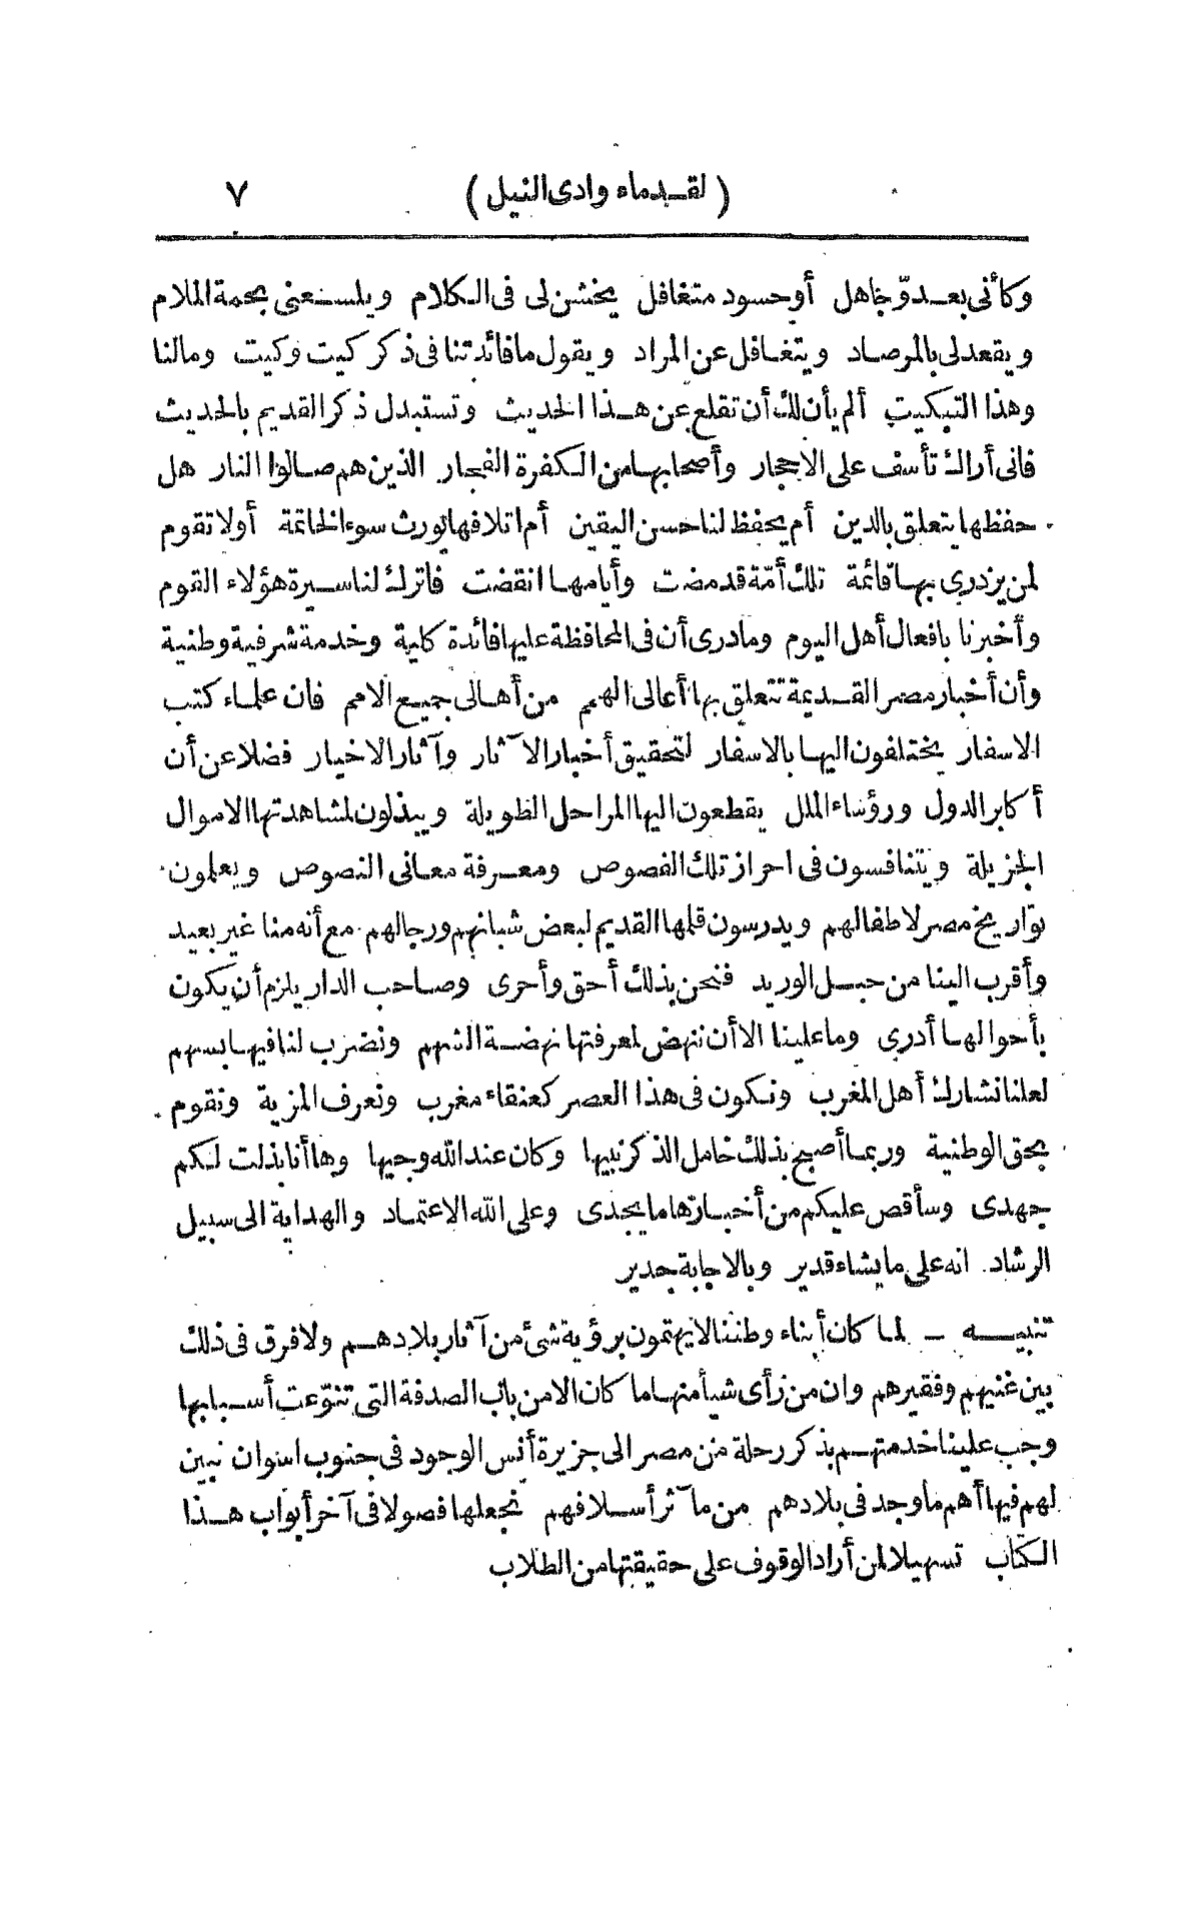 (لقدماء وادى النيل) ٧
وكأنى بعدوّ جاهل أو حسود متغافل يخشن لى فى الكلام ويلسعنى بحمة الملام
ويقعد لى بالمرصاد ويتغافل عن المراد ويقول ما فائدتنا فى ذكر كيت وكيت ومالنا
وهذا التبكيت ألم يأن لك أن تقلع عن هذا الحديث وتستبدل ذكر القديم بالحديث
فانى أراك تأسف على الاحجار وأصحابها من الكفرة الفجار الذين هم صالوا النار هل
حفظها يتعلق بالدين أم يحفظ لنا حسن اليقين أم اتلافها يورث سوء الخاتمة أولا تقوم
لمن يزدرى بها قائمة تلك أمّة قد مضت وأيامها انقضت فاترك لنا سيرة هؤلاء القوم
وأخبرنا بافعال أهل اليوم وما درى أن فى المحافظة عليها فائدة كلية وخدمة شرفية وطنية
وأن أخبار مصر القديمة تتعلق بها أعالى الهمم من أهالى جميع الامم فان علماء كتب
الاسفار يختلفون اليها بالاسفار لتحقيق أخبار الآثار وآثار الاخيار فضلا عن أن
أكابر الدول ورؤساء الملل يقطعون اليها المراحل الطويلة ويبذلون لمشاهدتها الاموال
الجزيلة ويتنافسون فى احراز تلك الفصوص ومعرفة معانى النصوص ويعلمون
تواريخ مصر لاطفالهم ويدرسون قلمها القديم لبعض شبانهم ورجالهم مع أنه منا غير بعيد
وأقرب الينا من حبل الوريد فنحن بذلك أحق وأحرى وصاحب الدار يلزم أن يكون
بأحوالها أدرى وما علينا الا أن ننهض لمعرفتها نهضة الشهم ونضرب لنا فيها بسهم
لعلنا نشارك أهل المغرب ونكون فى هذا العصر كعنقاء مغرب ونعرف المزية ونقوم
بحق الوطنية وربما أصبح بذلك خامل الذكر نبيها وكان عند الله وجيها وها أنا بذلت لكم
جهدى وسأقص عليكم من أخبارها ما يجدى وعلى الله الاعتماد والهداية الى سبيل
الرشاد انه على ما يشاء قدير وبالاجابة جدير
تنبيه – لما كان أبناء وطننا لا يهتمون برؤية شئ من آثار بلادهم ولا فرق فى ذلك
بين غنيهم وفقيرهم وان من رأى شيأ منها ما كان الا من باب الصدفة التى تنوّعت أسبابها
وجب علينا خدمتهم بذكر رحلة من مصر الى جزيرة أنس الوجود فى جنوب اسوان نبين
لهم فيها أهم ما وجد فى بلادهم من مآثر أسلافهم نجعلها فصولا فى آخر أبواب هذا
الكتاب تسهيلا لمن أراد الوقوف على حقيقتها من الطلاب